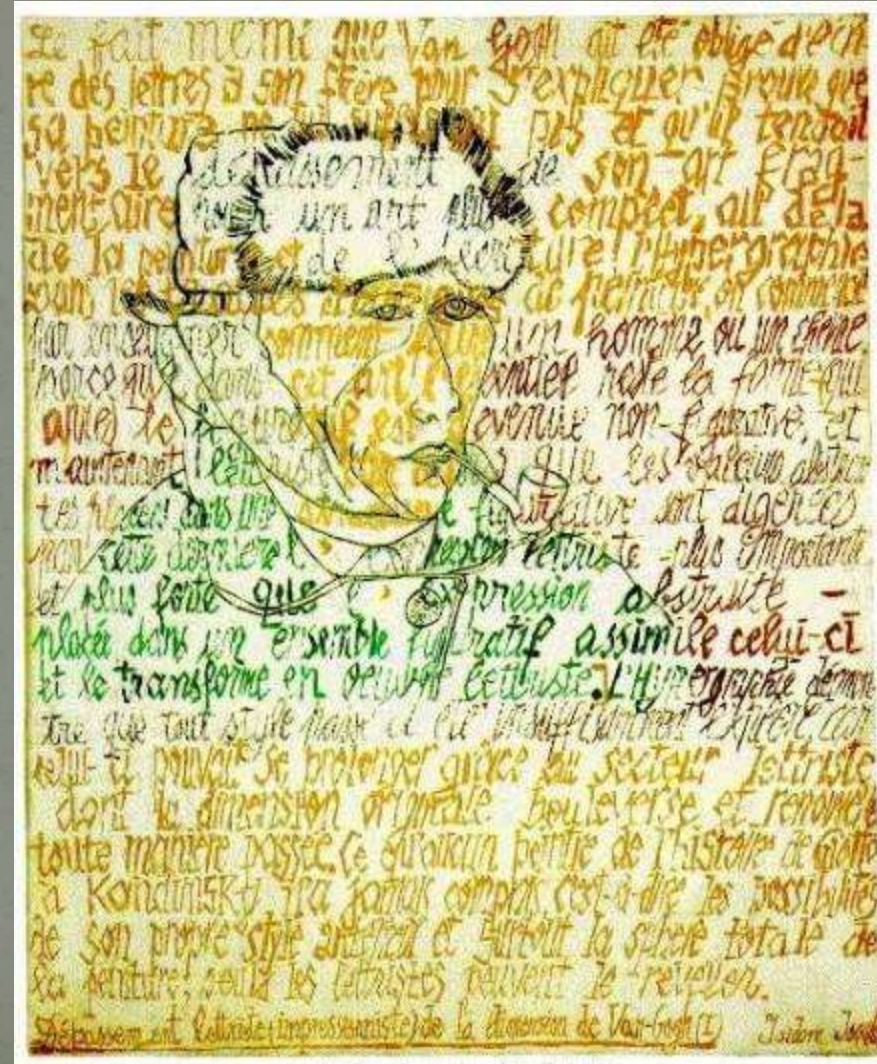 Le fait même que Van Gogh ait été obligé d'écri
re des lettres à son frère pour s'expliquer prouve que
sa peinture ne pas et qu'il tendait
vers le dépassement de son art frag-
mentaire un art plus complet, au delà
de la peinture et de l'écriture! l'Hypergraphie
de peinture, on commence
par enseigner comment un homme ou un chêne
parce que dans cet art reste la forme qui
le devenue non-figurative, et
maintenant lettriste que les valeurs abstrac
tes placées dans une figurative sont digérées
par cette dernière lettriste plus importante
et plus forte que l'expression abstraite –
placée dans un ensemble figuratif assimile celui-ci
et le transforme en oeuvre lettriste. L'Hypergraphie démon
tre que tout style passé a été insuffisamment exploré, car
celui-ci pouvait se prolonger grâce au secteur lettriste
dont la dimension originale bouleverse et renouvelle
toute manière passée. Ce qu'aucun peintre de l'histoire de Giotto
à Kandinsky n'a jamais compris, c'est-à-dire les possibilités
de son propre style antérieur et surtout la sphère totale de
la peinture, seuls les lettristes peuvent le révéler.
Dépassement lettriste (impressionniste) de la dimension de Van-Gogh (I) Isidore Isou